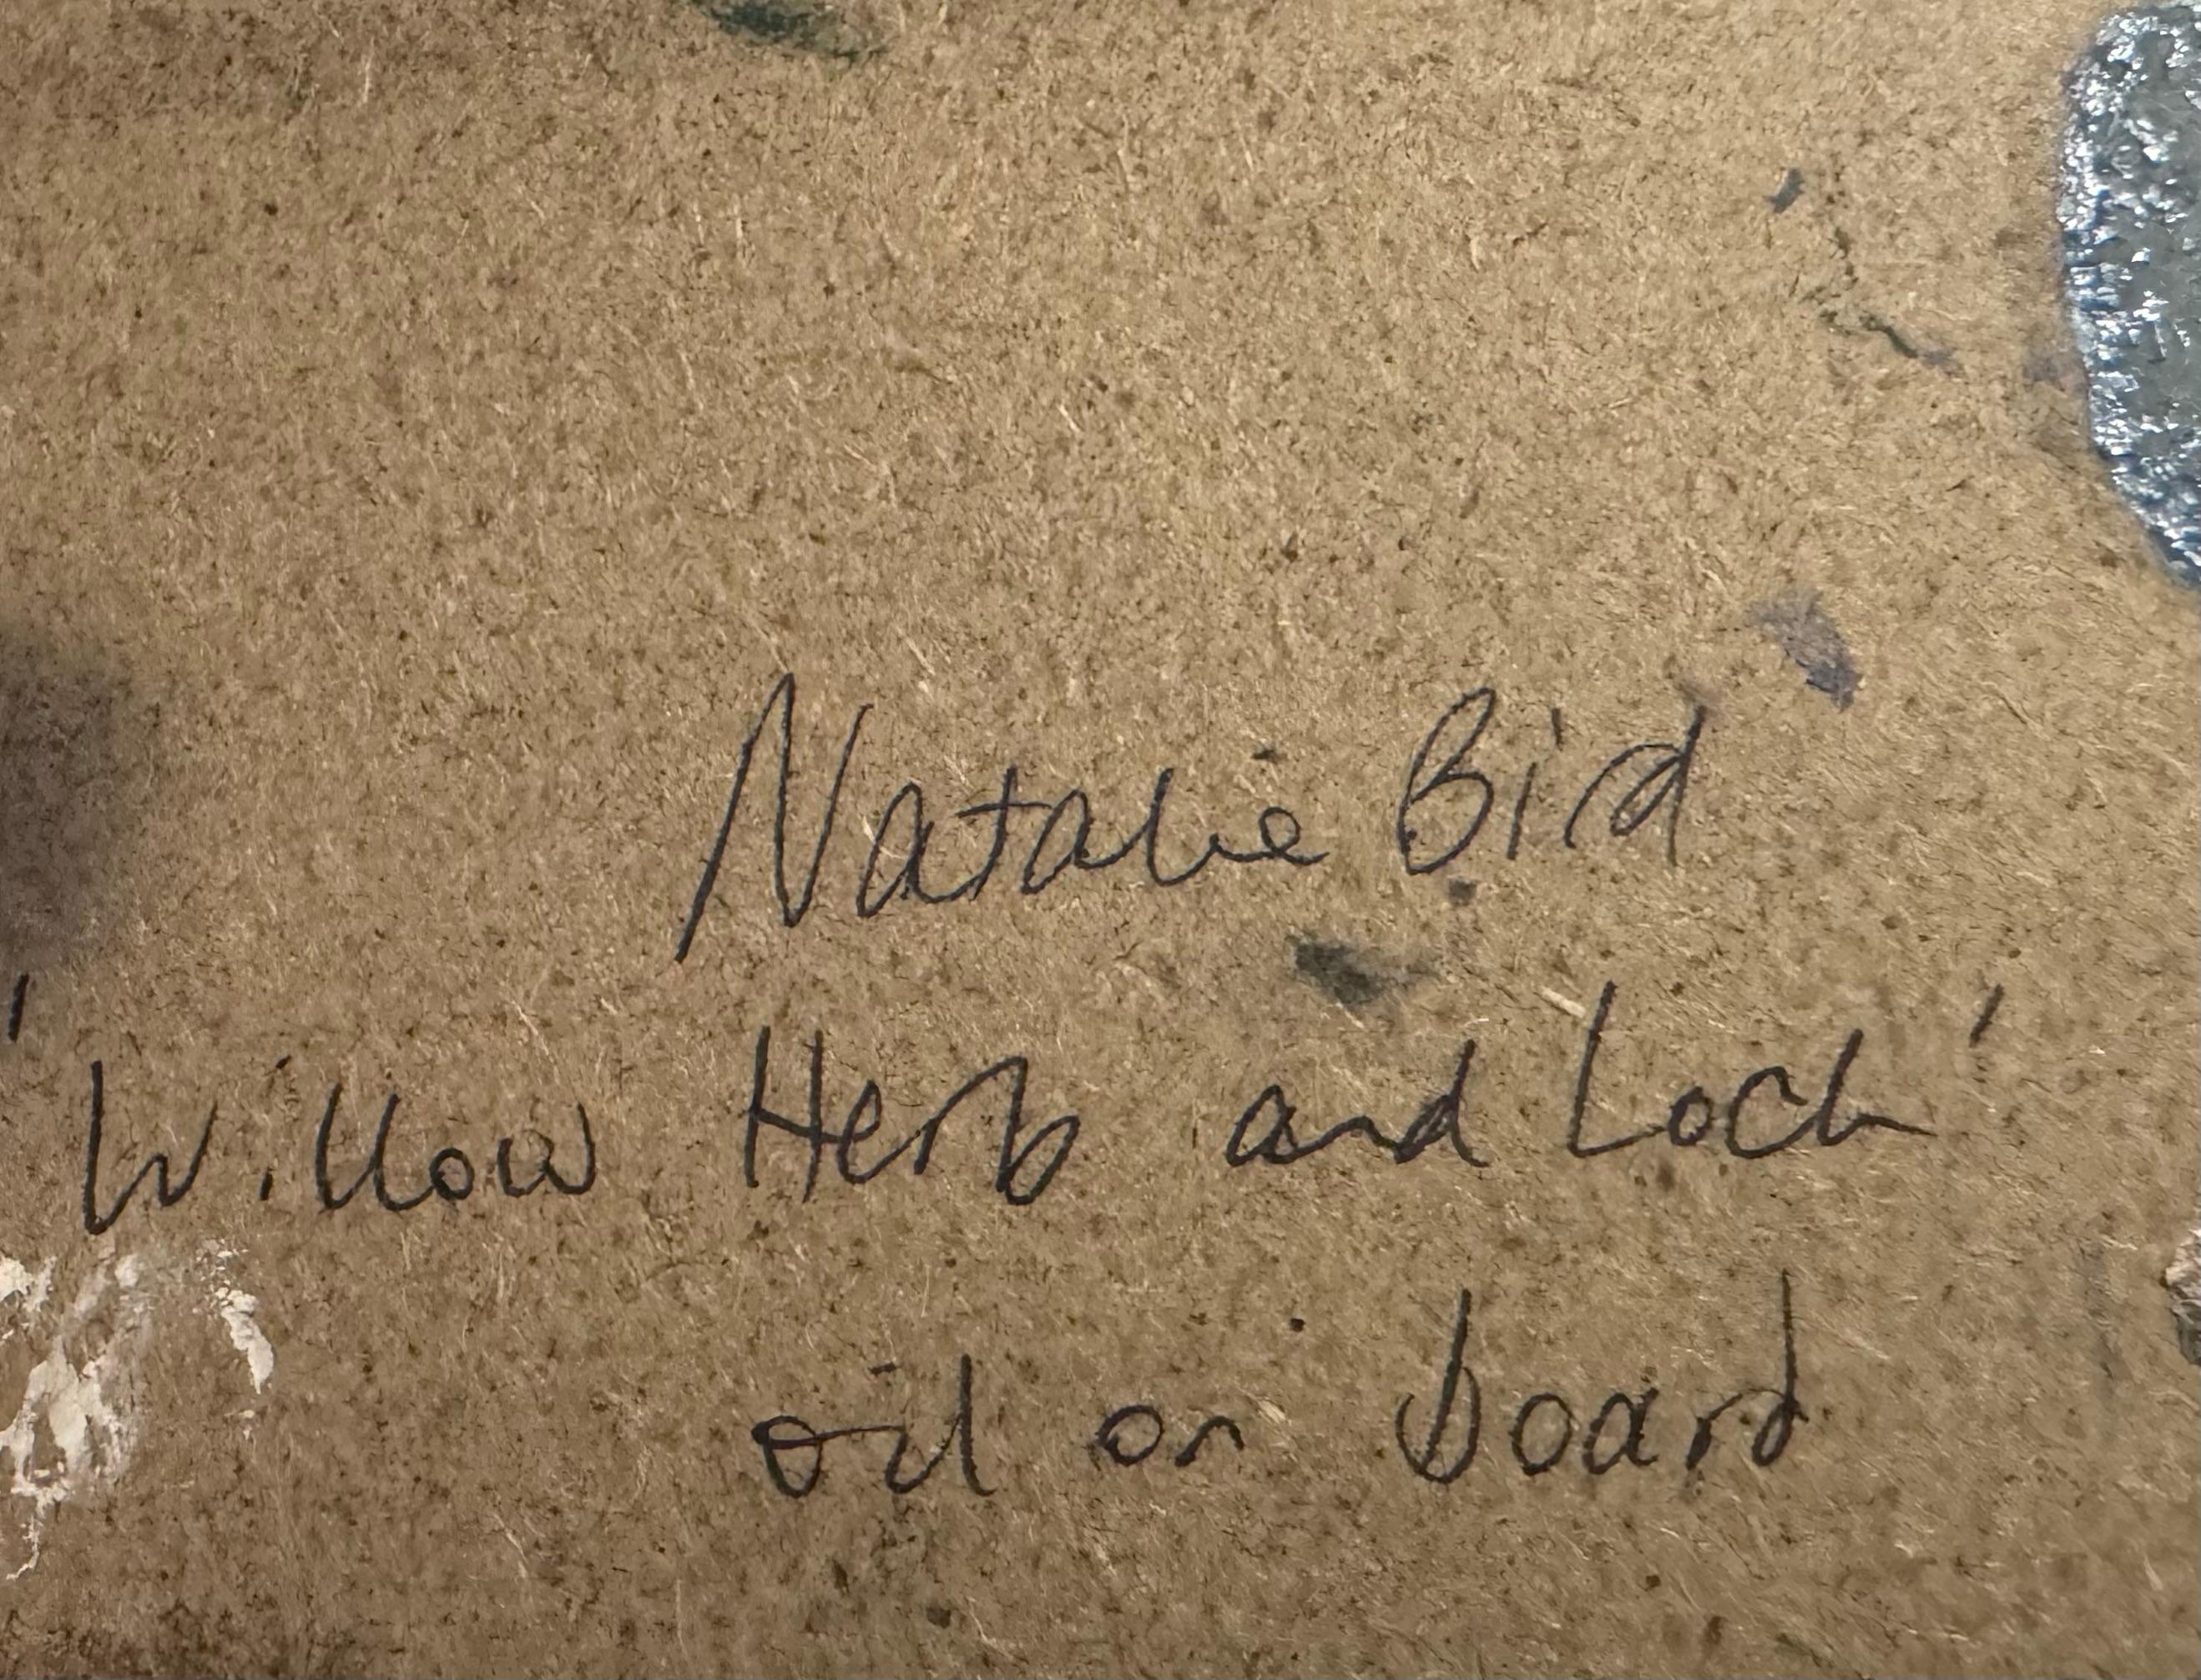 Natalie Bird
'Willow Herb and Loch'
oil on board